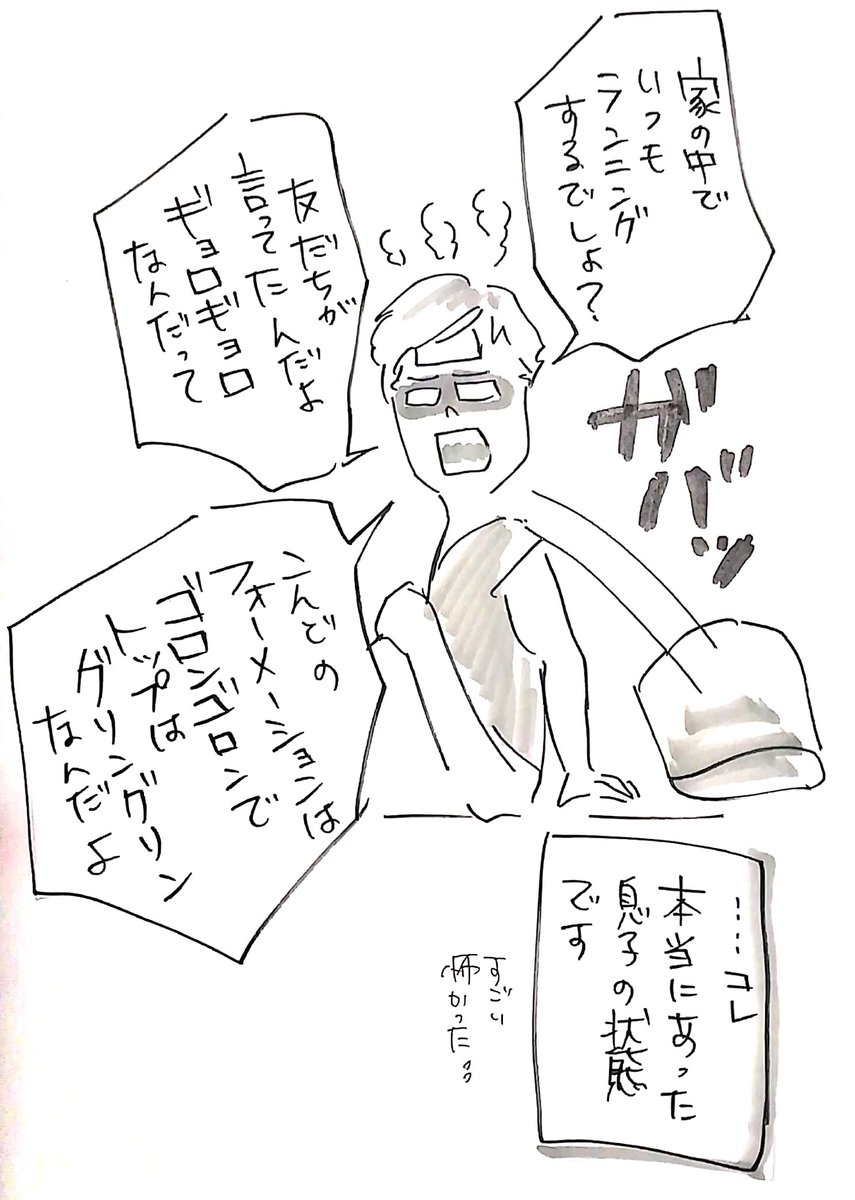 家の中で
いつも
ランニング
するでしょ?
ガバッ
友だちが
言ってたんだよ
ギョロギョロ
なんだって
こんどの
フォーメーションは
ゴロンゴロンで
トップは
グリングリン
なんだよ
……コレ
本当にあった
息子の状態
です
すごい
怖かった